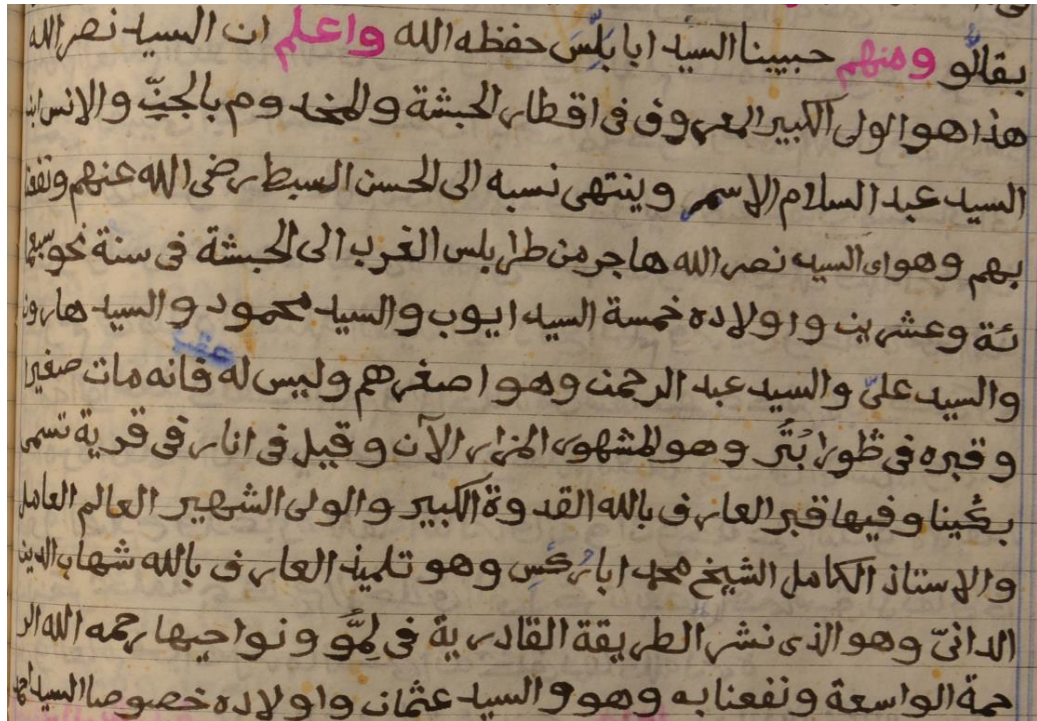 بقالو ومنهم حبيبنا السيد ابا بلّس حفظه الله واعلم ان السيد نصر الله
هذا هو الولى الكبير المعروف فى اقطار الحبشة والمخدوم بالجنّ والانس ابن
السيد عبد السلام الاسمر وينتهى نسبه الى الحسن السبط رضى الله عنهم ونفعنا
بهم وهو اى السيد نصر الله هاجر من طرابلس الغرب الى الحبشة فى سنة نحو سبعما
ئة وعشرين واولاده خمسة السيد ايوب والسيد محمود والسيد هارون
والسيد علىّ والسيد عبد الرحمن وهو اصغرهم وليس له عقب فانه مات صغيرا
وقبره فى طورا بُتَر وهو المشهور المزار الآن وقيل فى انار فى قرية تسمى
بكُينا وفيها قبر العارف بالله القدوة الكبير والولى الشهير العالم العامل
والاستاذ الكامل الشيخ محمد ابا رُكُس وهو تلميذ العارف بالله شهاب الدين
الدانىّ وهو الذى نشر الطريقة القادرية فى لِمُّو ونواحيها رحمه الله الر
حمة الواسعة ونفعنا به وهو والسيد عثمان واولاده خصوصا السيد احمد